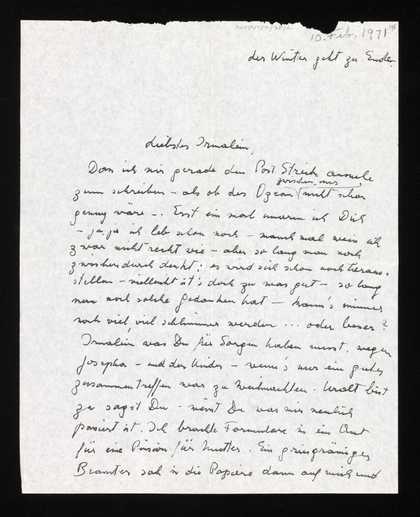 10. Feb. 1971
der Winter geht zu Ende.
Liebstes Irmalein,
Dass ich mir gerade den Post Streik aussuche
zwischen uns
zum schreiben - als ob der Ozean nicht schon
genug wäre -. Erst ein mal umarm ich Dich
- ja, ja ich leb schon noch - manchmal weiss ich
zwar nicht recht wie - aber so lang man noch
zwischendurch denkt: es wird sich schon noch heraus-
stellen - vielleicht ist's doch zu was gut - so lang
man noch solche Gedanken hat - kann's immer
noch viel, viel schlimmer werden ... oder besser?
Irmalein was Du für Sorgen haben musst, wegen
Josepha - und der Kinder - wenn's nur ein gutes
zusammentreffen war zu Weihnachten. Uralt bist
zu sagst Du - weisst Du was mir neulich
passiert ist. Ich brachte Formulare in ein Amt
für eine Pension für Mutter. Ein griesgrämiger
Beamter sah in die Papiere dann auf mich und